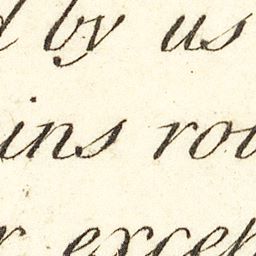 d by us
ins rou
r excep